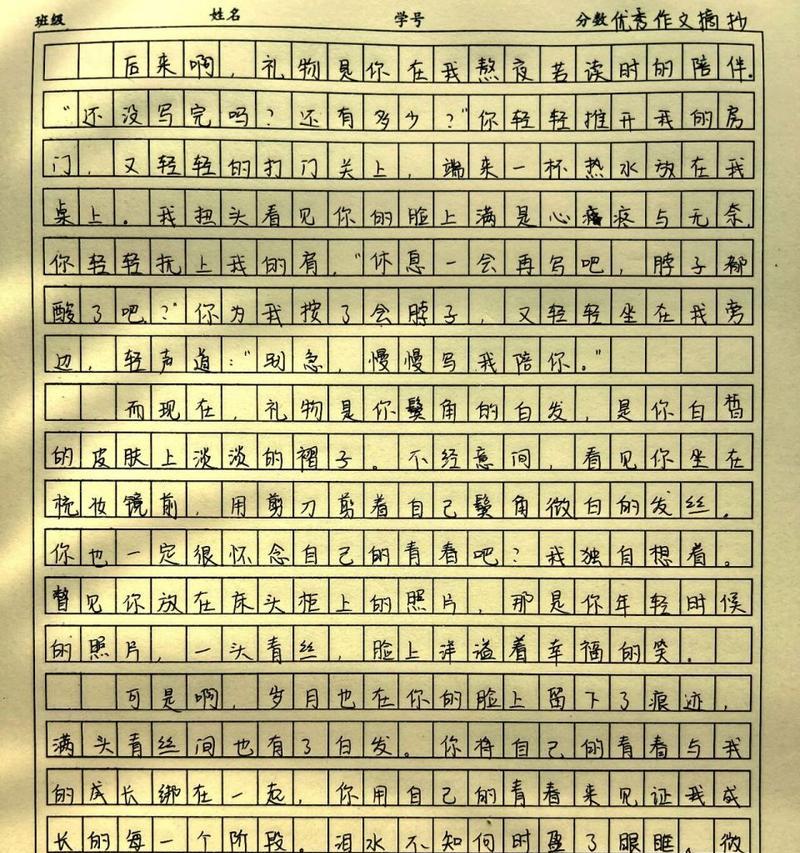 班级 姓名 学号 分数 优秀作文摘抄
后来啊，礼物是你在我熬夜苦读时的陪伴.
“还没写完吗？还有多少？”你轻轻推开我的房
门，又轻轻的打门关上，端来一杯热水放在我
桌上。我扭头看见你的脸上满是心疼与无奈.
你轻轻抚上我的肩，“休息一会再写吧，脖子都
酸了吧？”你为我按了会脖子，又轻轻坐在我旁
边，轻声道：“别急，慢慢写我陪你。”
而现在，礼物是你鬓角的白发，是你白皙
的皮肤上淡淡的褶子。不经意间，看见你坐在
梳妆镜前，用剪刀剪着自己鬓角微白的发丝.
你也一定很怀念自己的青春吧？我独自想着。
瞥见你放在床头柜上的照片，那是你年轻时候
的照片，一头青丝，脸上洋溢着幸福的笑.
可是啊，岁月也在你的脸上留下了痕迹，
满头青丝间也有了白发。你将自己的青春与我
的成长绑在一起，你用自己的青春来见证我成
长的每一个阶段。泪水不知何时盈了眼眶。微